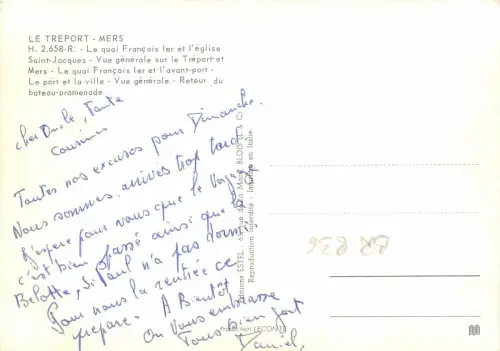 LE TREPORT - MERS
H. 2.658-R. - Le quai François Ier et l'église
Saint-Jacques - Vue générale sur le Tréport et
Mers - Le quai François Ier et l'avant-port -
Le port et la ville - Vue générale - Retour du
bateau-promenade
cher Oncle, Tante
Cousines
Toutes nos excuses pour Dimanche.
Nous sommes arrivés trop tard
J'espère pour vous que le voyage
c'est bien passé ainsi que la
Belotte, si Paul n'a pas dormi
Pour nous la rentrée ce
prépare. A Bientôt
On Vous embrasse
Tous bien fort
Daniel.
Editions ESTEL - BLOIS (L. & C.)
Reproduction interdite - Imprimé en Italie
Production LECONTE
BR 836